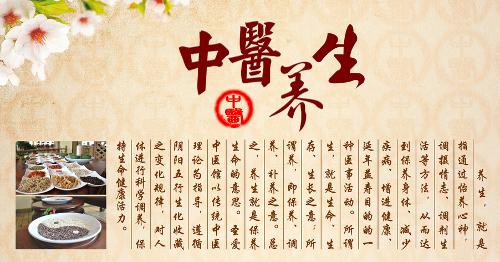 中醫养生
中醫
养生，就是
指通过怡养心神，
调摄情志、调剂生
活等方法，从而达
到保养身体、减少
疾病、增进健康、
延年益寿目的的一
种医事活动。所谓
生，就是生命、生
存、生长之意；所
谓养，即保养、调
养、补养之意。总
之，养生就是保养
生命的意思。圣爱
中医馆以传统中医
理论为指导，遵循
阴阳五行生化收藏
之变化规律，对人
体进行科学调养，保
持生命健康活力。